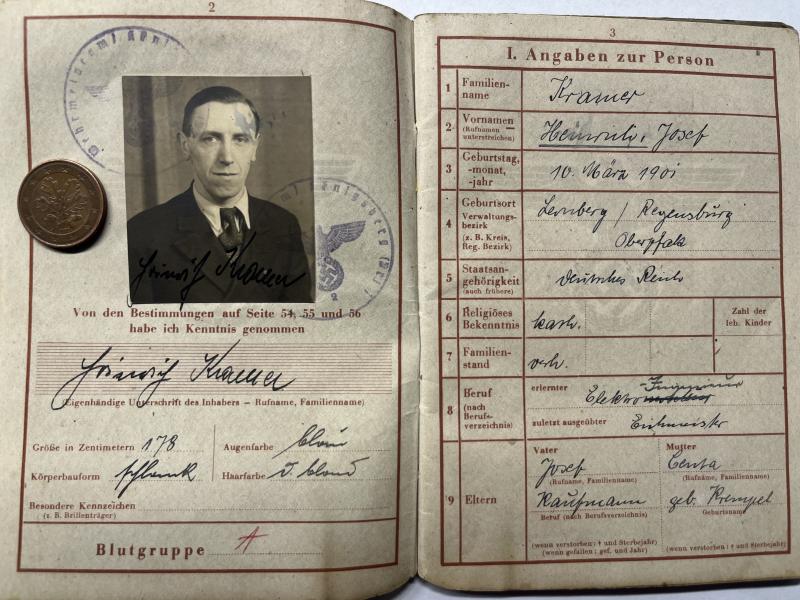 2
Wehrmeldeamt König
Königsberg (Pr.)
Heinrich Kramer
Von den Bestimmungen auf Seite 54, 55 und 56
habe ich Kenntnis genommen
Heinrich Kramer
(Eigenhändige Unterschrift des Inhabers – Rufname, Familienname)
Größe in Zentimetern 178 Augenfarbe blau
Körperbauform schlank Haarfarbe d. blond
Besondere Kennzeichen
(z. B. Brillenträger)
Blutgruppe A
3
I. Angaben zur Person
1 Familien-
name
Kramer
2 Vornamen
(Rufnamen
unterstreichen)
Heinrich, Josef
3 Geburtstag,
-monat,
-jahr
10. März 1901
4 Geburtsort
Verwaltungs-
bezirk
(z. B. Kreis,
Reg. Bezirk)
Regensburg
Oberpfalz
5 Staatsan-
gehörigkeit
(auch frühere)
Deutsches Reich
6 Religiöses
Bekenntnis
kath.
Zahl der
leb. Kinder
7 Familien-
stand
verh.
8 Beruf
(nach
Berufs-
verzeichnis)
erlernter
Ingenieur
Elektro
zuletzt ausgeübter Eichmeister
9 Eltern
Vater
Josef
(Rufname, Familienname)
Kaufmann
Beruf (nach Berufsverzeichnis)
(wenn verstorben: † und Sterbejahr)
(wenn gefallen: gef. und Jahr)
Mutter
Centa
(Rufname, Familienname)
geb. Krempel
Geburtsname
(wenn verstorben: † und Sterbejahr)